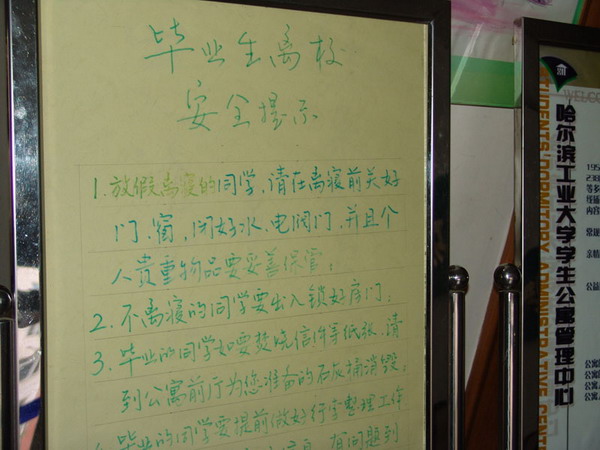 毕业生离校
安全提示
1. 放假离寝的同学,请在离寝前关好
门、窗,闭好水、电阀门,并且个
人贵重物品要妥善保管;
2. 不离寝的同学要出入锁好房门;
3. 毕业的同学如要焚烧信件等纸张,请
到公寓前厅为您准备的石灰桶消毁;
毕业的同学要提前做好行李整理工作
有问题到
WELCO
哈尔滨工业大学学生公寓管理中心
STUDENTS' DORMITORY ADMINISTRATIVE CENTE